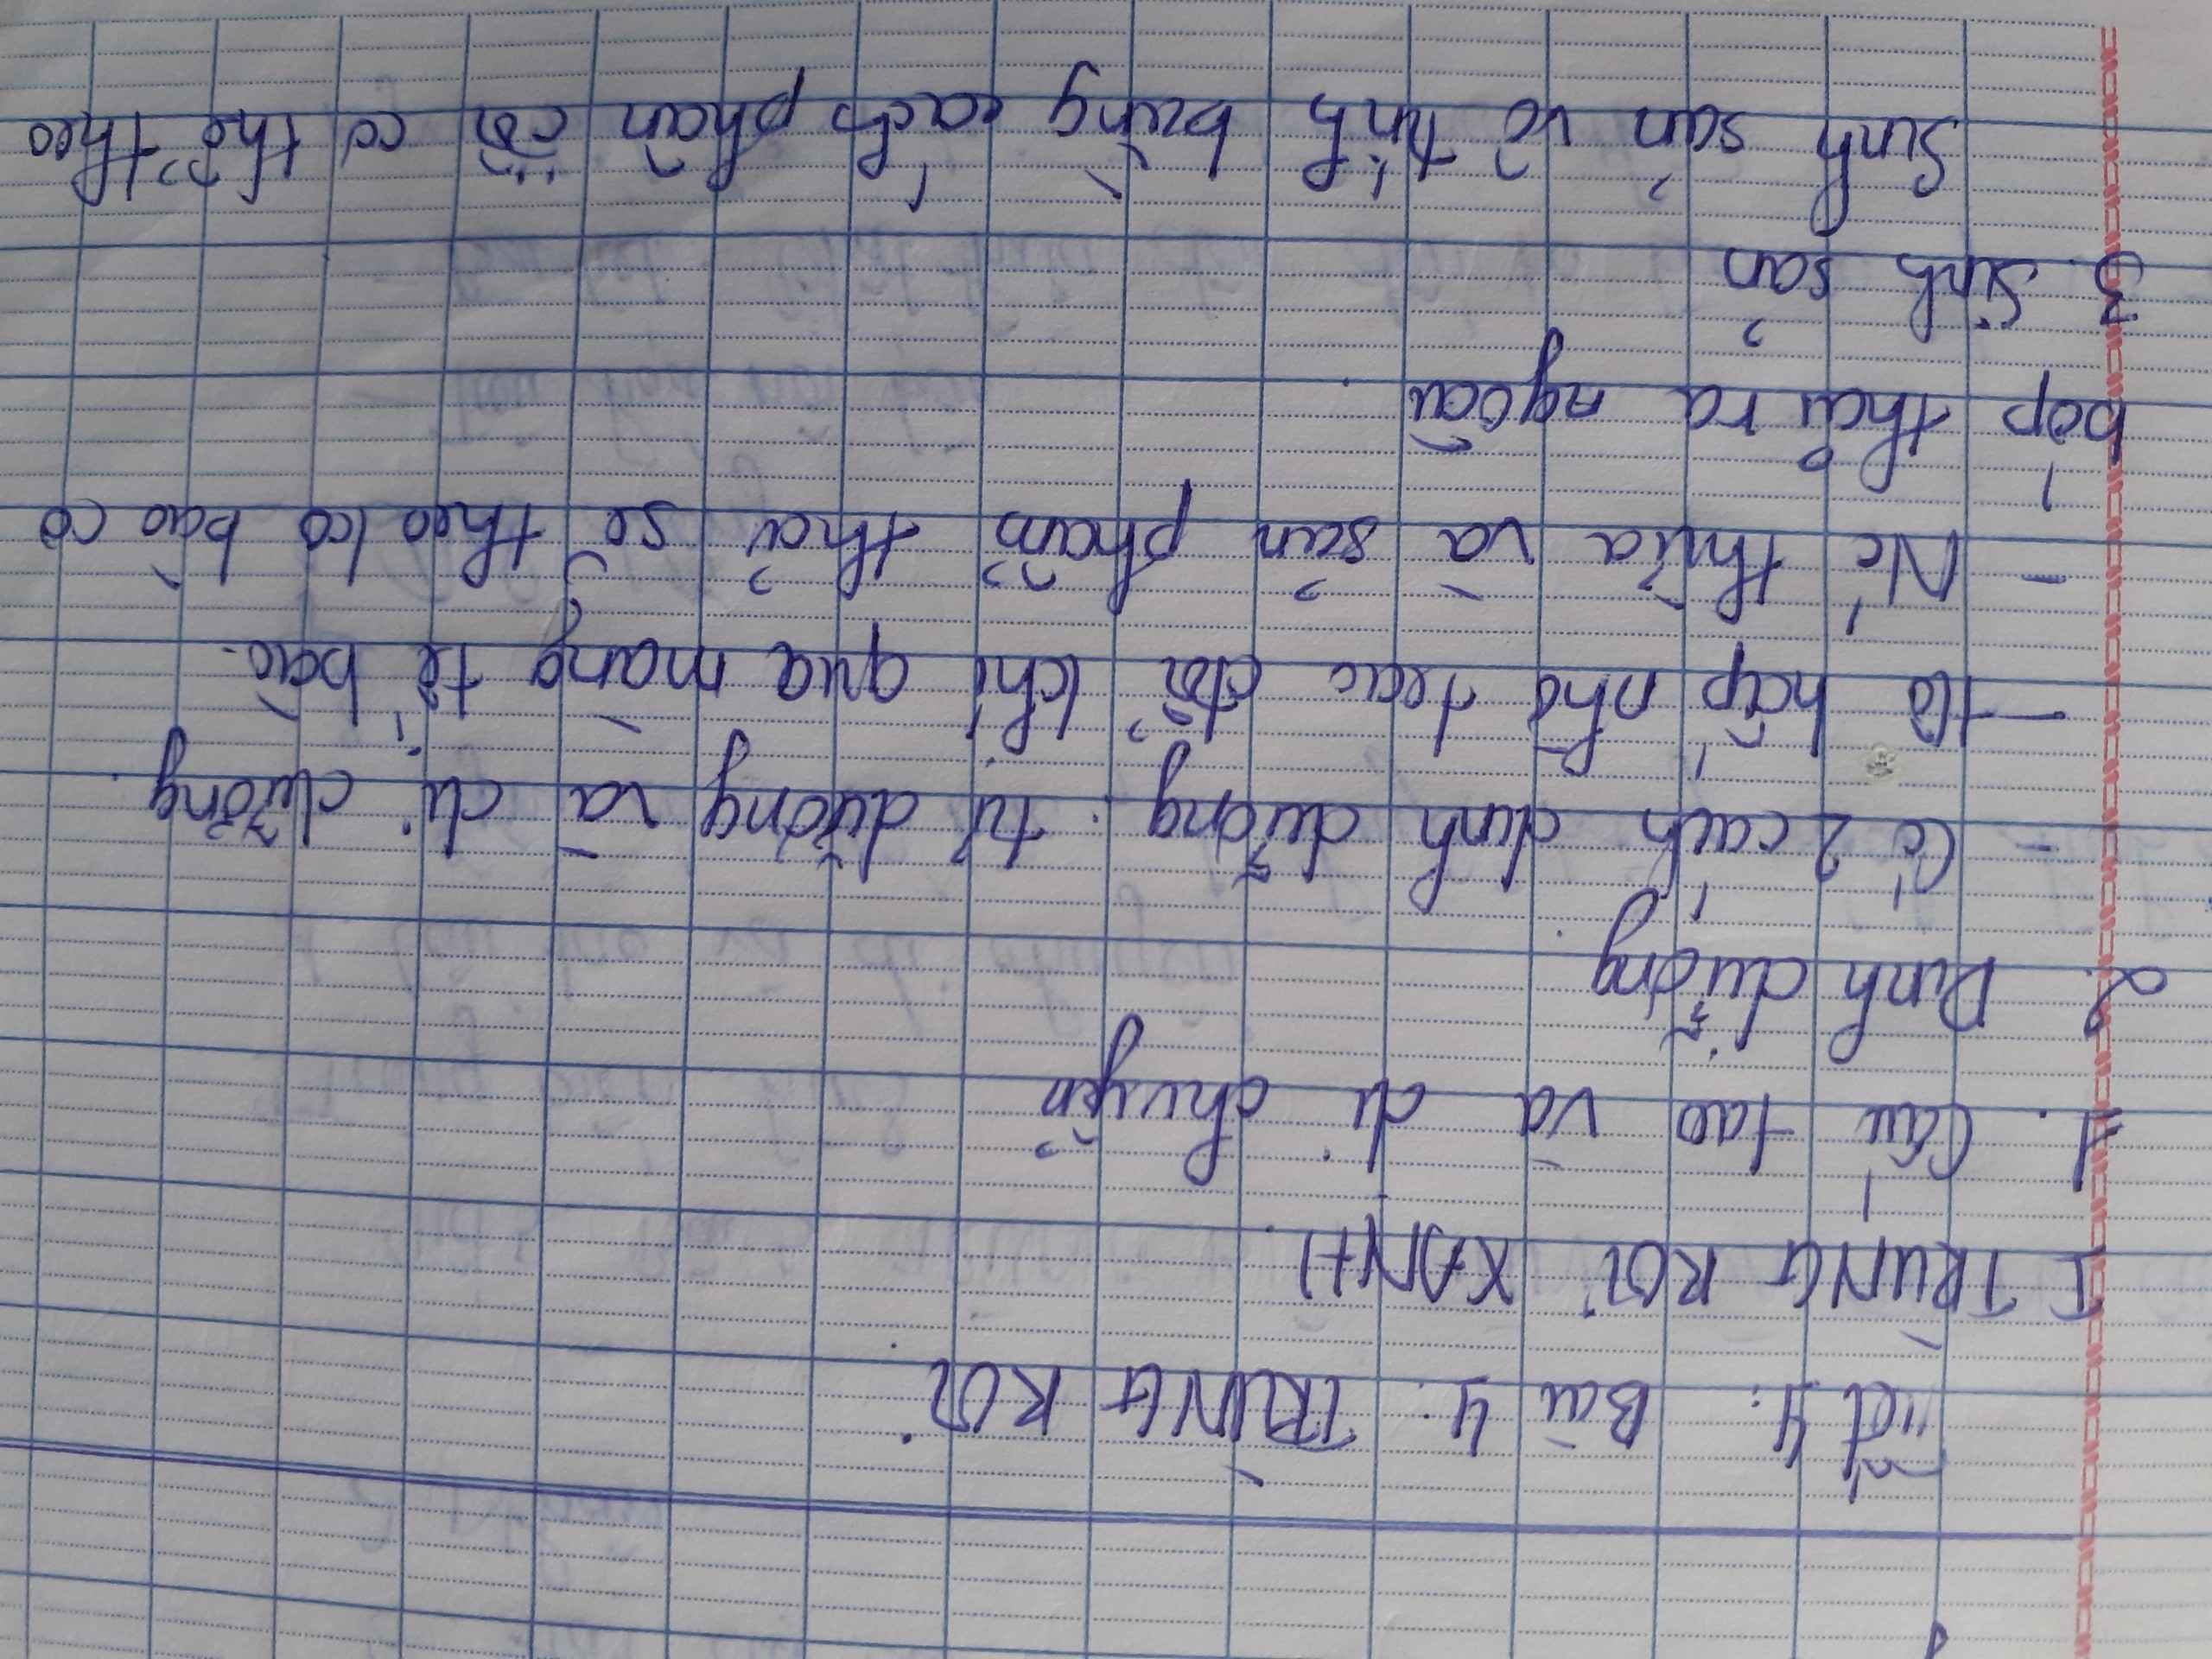 Tiết 4: Bài 4: TRÙNG ROI
I TRÙNG ROI XANH
1. Cấu tạo và di chuyển
2. Dinh dưỡng
- Có 2 cách dinh dưỡng: tự dưỡng và dị dưỡng.
- Hô hấp nhờ trao đổi khí qua màng tế bào.
- Nc thừa và sản phẩm thải sẽ theo ko bào co
bóp thải ra ngoài
3. Sinh sản
Sinh sản vô tính bằng cách phân đôi cơ thể theo